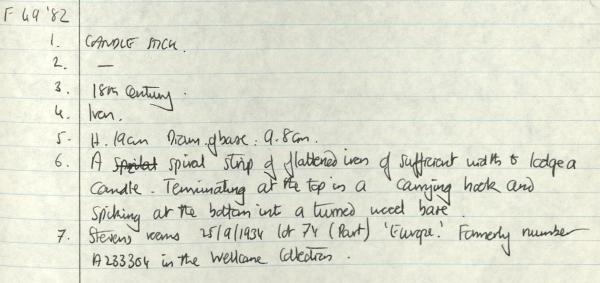 F 49 '82
1. CANDLE STICK.
2. —
3. 18th Century.
4. Iron.
5. H. 19cm Diam. of base: 9.8cm.
6. A spiral spiral strip of flattened iron of sufficient width to lodge a
candle. Terminating at the top in a carrying hook and
spiking at the bottom into a turned wood base.
7. Stevens rooms 25/9/1934 lot 74 (Part) 'Europe.' Formerly number
A233304 in the Wellcome Collection.